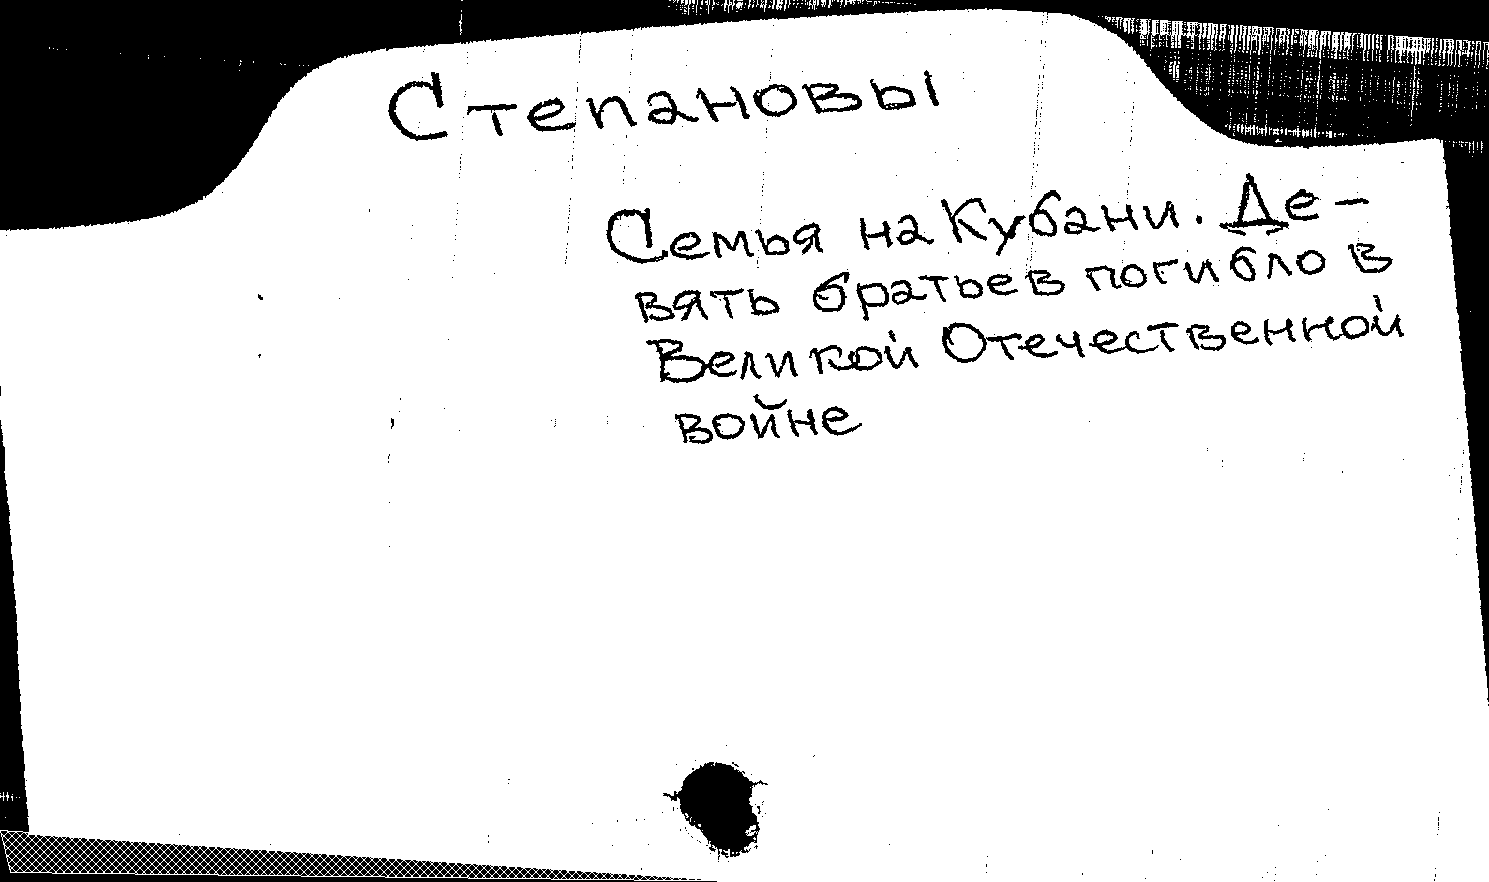 Степановы
Семья на Кубани. Де-
вять братьев погибло в
Великой Отечественной
войне